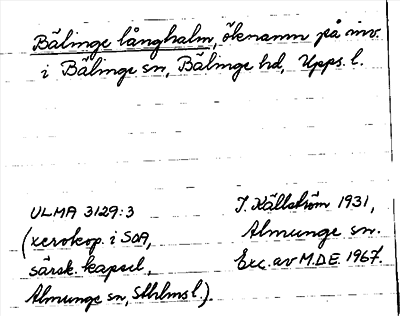 Bälinge långhalm, öknamn på inv.
i Bälinge sn, Bälinge hd, Upps. l.
ULMA 3129:3
(xerokop. i SOA,
särsk. kapsel,
Almunge sn, Sthlms l.).
I. Källström 1931,
Almunge sn.
Exc. av M.D.E. 1967.